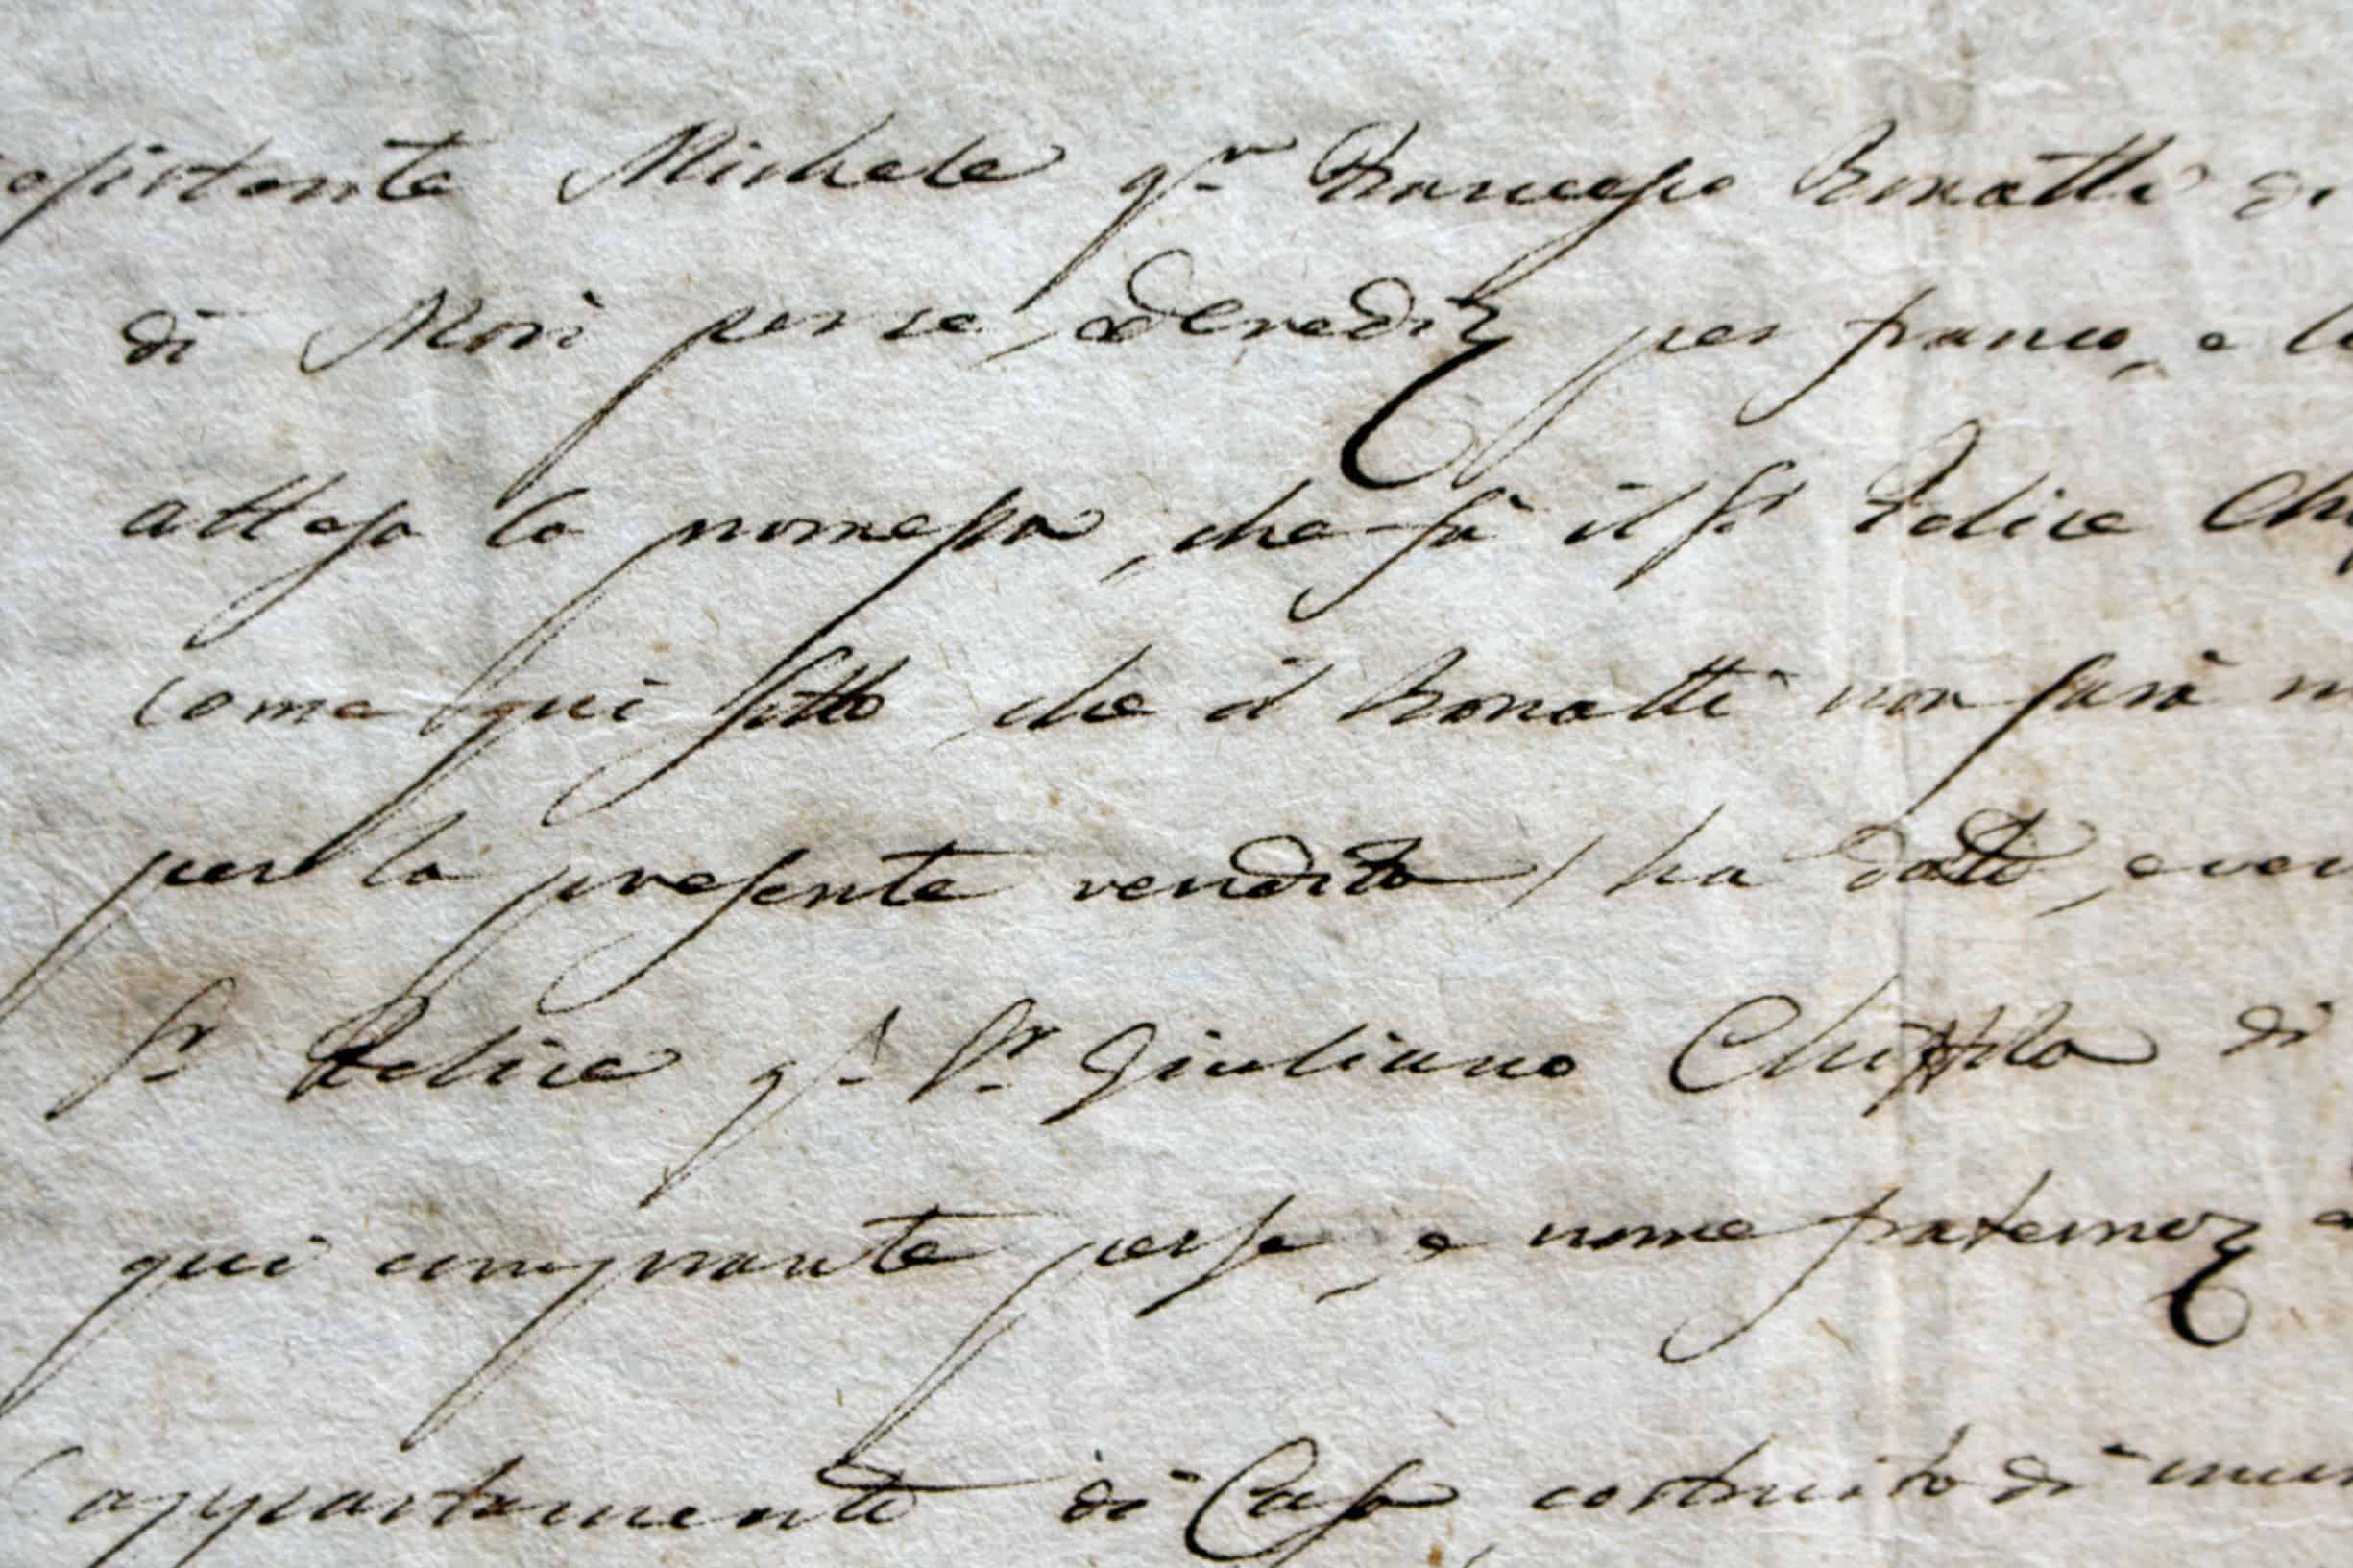 esistente Michele qm Francesco Bonatti di
di Mori per se, ed eredi per franco, e li
attesa la promessa, che fà il Sr Felice
come qui sotto, che il Bonatti non sarà
per la presente vendita / ha dato, e
Sr Felice qm Sr Giuliano Chizzola di
qui comprante per se, e nome fraterno
appartamento di Casa, costruito di